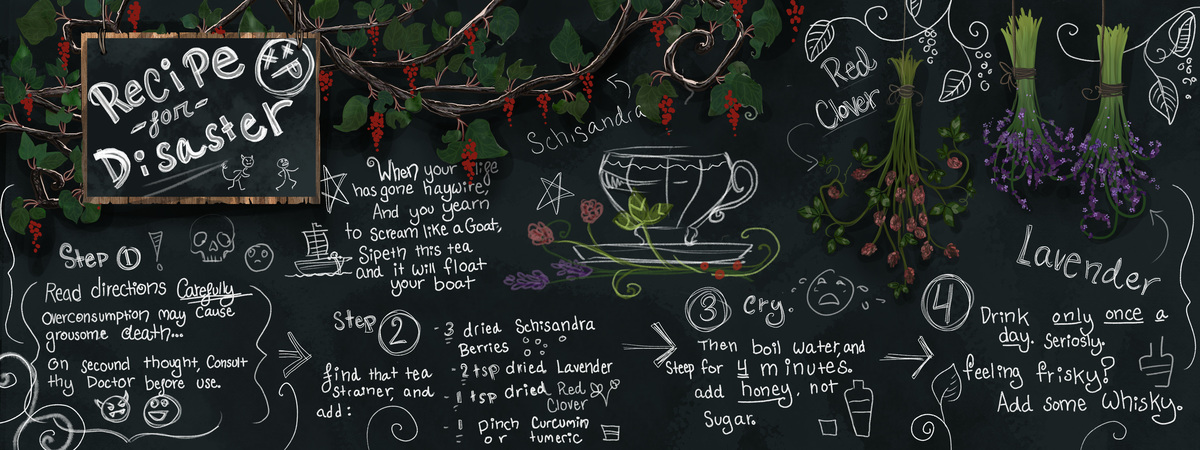 Recipe
-for-
Disaster
When your life
has gone haywire,
And you yearn
to scream like a Goat,
Sipeth this tea
and it will float
your boat
Schisandra
Red
Clover
Lavender
Step 1 !
Read directions Carefully
Overconsumption may cause
grousome death...
On secound thought, Consult
thy Doctor before use.
Step 2
find that tea
strainer, and
add:
-3 dried Schisandra
Berries
-2 tsp dried Lavender
-1 tsp dried Red
Clover
-1 pinch Curcumin
or tumeric
3 cry.
Then boil water, and
Steep for 4 minutes.
add honey, not
Sugar.
4 Drink only once a
day. Seriosly.
feeling frisky?
Add some Whisky.